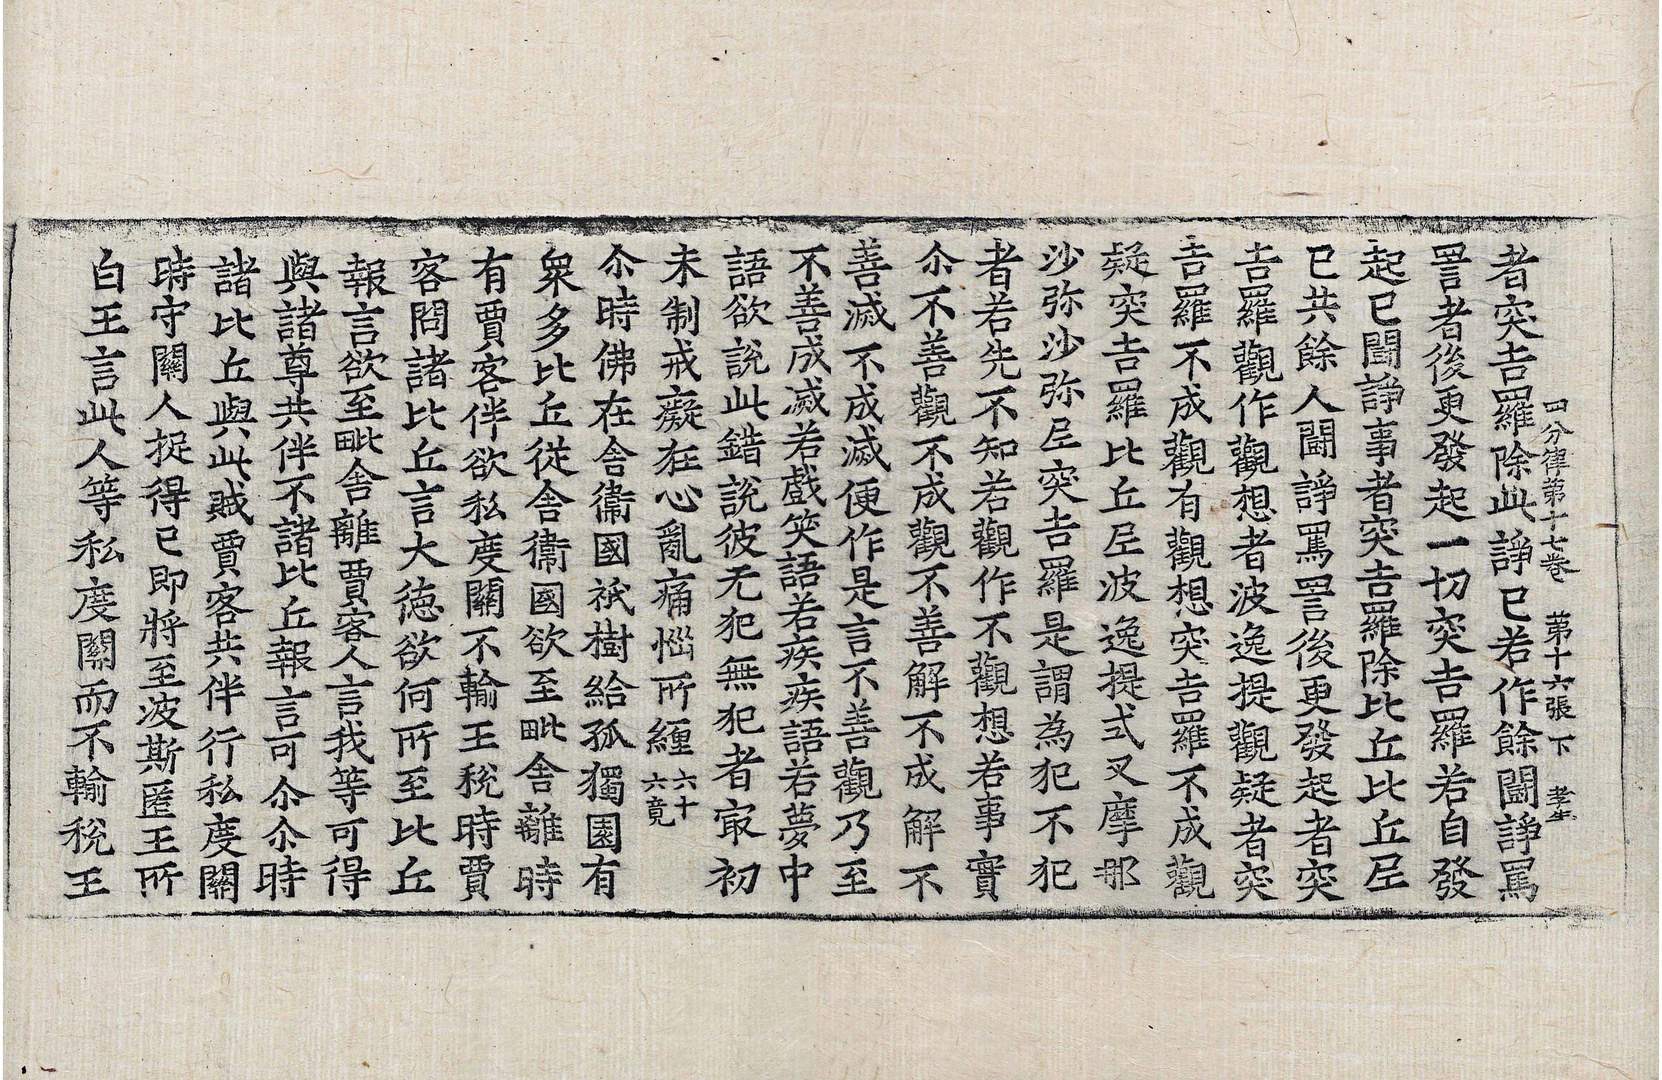 四分律第十七卷 第十六張 下 孝生
者突吉羅除此諍已若作餘鬪諍罵
詈者後更發起一切突吉羅若自發
起已鬪諍事者突吉羅除比丘比丘尼
已共餘人鬪諍罵詈後更發起者突
吉羅觀作觀想者波逸提觀疑者突
吉羅不成觀有觀想突吉羅不成觀
疑突吉羅比丘尼波逸提式叉摩那
沙弥沙弥尼突吉羅是謂為犯不犯
者若先不知若觀作不觀想若事實
尒不善觀不成觀不善解不成解不
善滅不成滅便作是言不善觀乃至
不善成滅若戲笑語若疾疾語若夢中
語欲說此錯說彼无犯無犯者㝡初
未制戒癡狂心亂痛惱所纏六十六竟
尒時佛在舍衛國祇樹給孤獨園有
衆多比丘從舍衛國欲至毗舍離時
有賈客伴欲私度關不輸王稅時賈
客問諸比丘言大德欲何所至比丘
報言欲至毗舍離賈客人言我等可得
與諸尊共伴不諸比丘報言可尒尒時
諸比丘與此賊賈客共伴行私度關
時守關人捉得已即將至波斯匿王所
白王言此人等私度關而不輸稅王